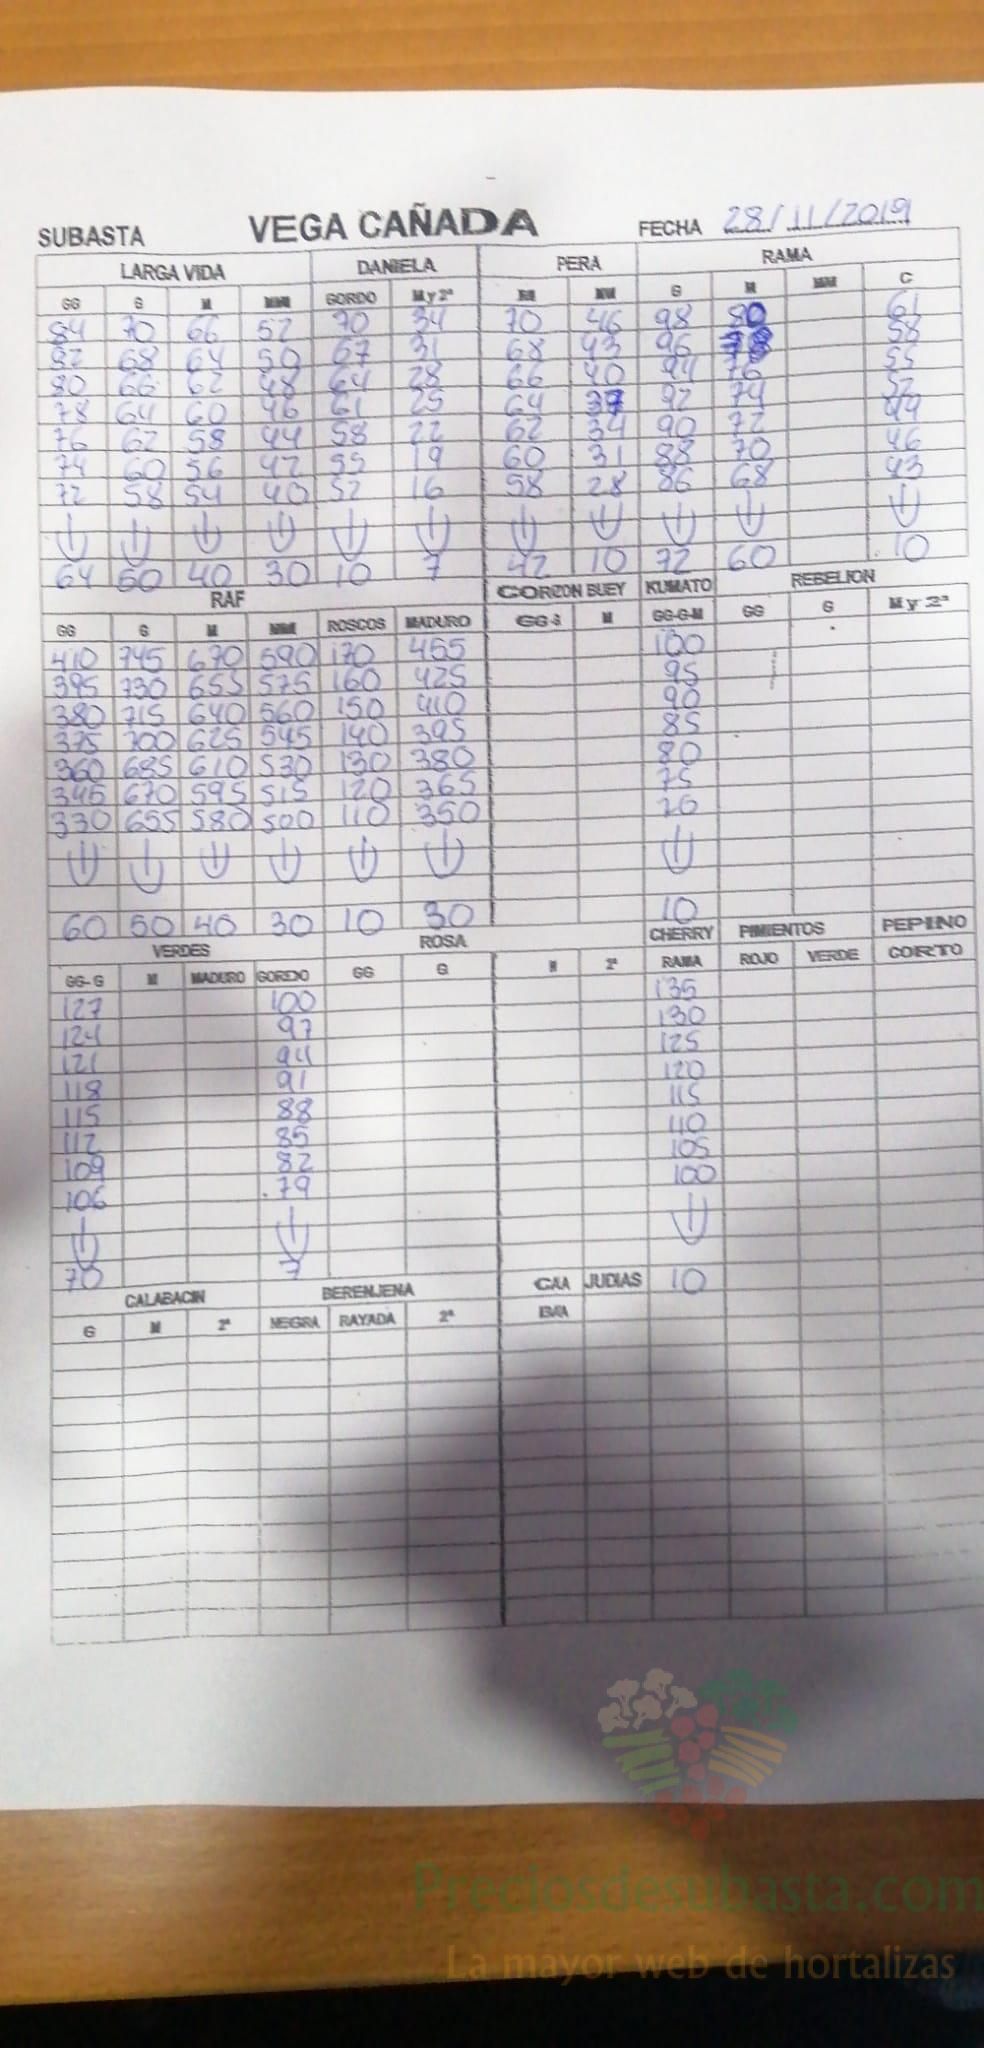 SUBASTA VEGA CAÑADA FECHA 28/11/2019
LARGA VIDA DANIELA PERA RAMA
GG G M MM GORDO M y 2ª M G M MM C
84 70 66 52 70 34 70 46 98 80 61
82 68 64 50 67 31 68 43 96 78 58
80 66 62 48 64 28 66 40 94 76 55
78 64 60 46 61 25 64 37 92 74 52
76 62 58 44 58 22 62 34 90 72 49
74 60 56 42 55 19 60 31 88 70 46
72 58 54 40 52 16 58 28 86 68 43
64 50 40 30 10 7 42 10 72 60 10
RAF CORZON BUEY KUMATO REBELION
GG G M MM ROSCOS MADURO GG-G M GG-G-M GG G M y 2ª
410 745 670 590 170 455 100
395 730 655 575 160 425 95
380 715 640 560 150 410 90
375 700 625 545 140 395 85
360 685 610 530 130 380 80
345 670 595 515 120 365 75
330 655 580 500 110 350 70
60 50 40 30 10 30 10
VERDES ROSA CHERRY PIMIENTOS PEPINO
GG-G M MADURO GORDO GG G M 2ª RAMA ROJO VERDE CORTO
127 100 135
124 97 130
121 94 125
118 91 120
115 88 115
112 85 110
109 82 105
106 79 100
70 7 10
CALABACIN BERENJENA CAA JUDIAS
G M 2ª NEGRA RAYADA 2ª
Preciosdesubasta.com
La mayor web de hortalizas